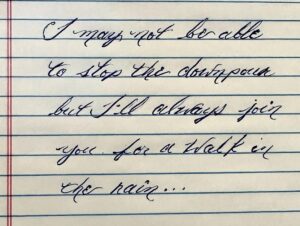 I may not be able
to stop the downpour
but I'll always join
you for a walk in
the rain...